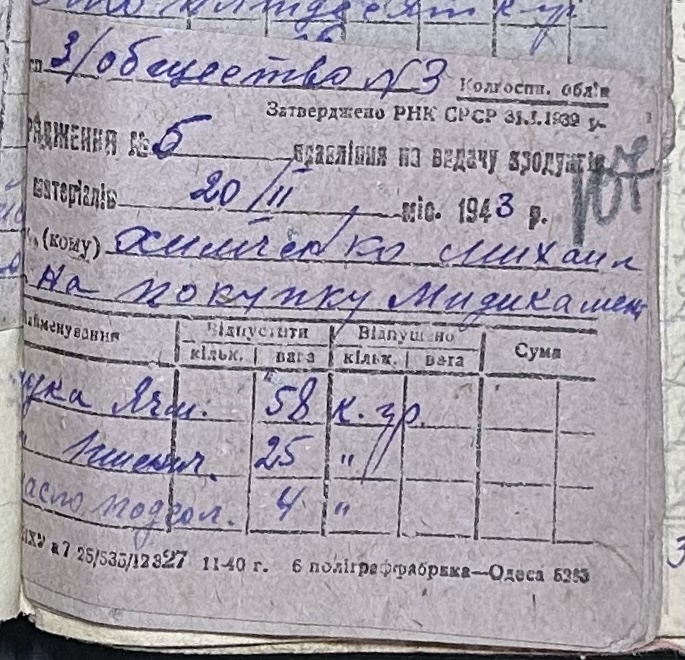 З/общество N3 Колгоспн. облік
Затверджено РНК СРСР 31.I.1939 р.
РЯДЖЕННЯ № 5 правління на видачу продуктів
матеріалів 20/II міс. 1943 р.
(кому) Химченко Михаил
На покупку Мидикамент
найменування Відпустити Відпущено Сума
кільк. вага кільк. вага
мука Ячм. 58 к.гр.
" Пшенич. 25 "
масло подсол. 4 "
25/535/12327 11-40 г. 6 поліграффабрика—Одеса 5283
107